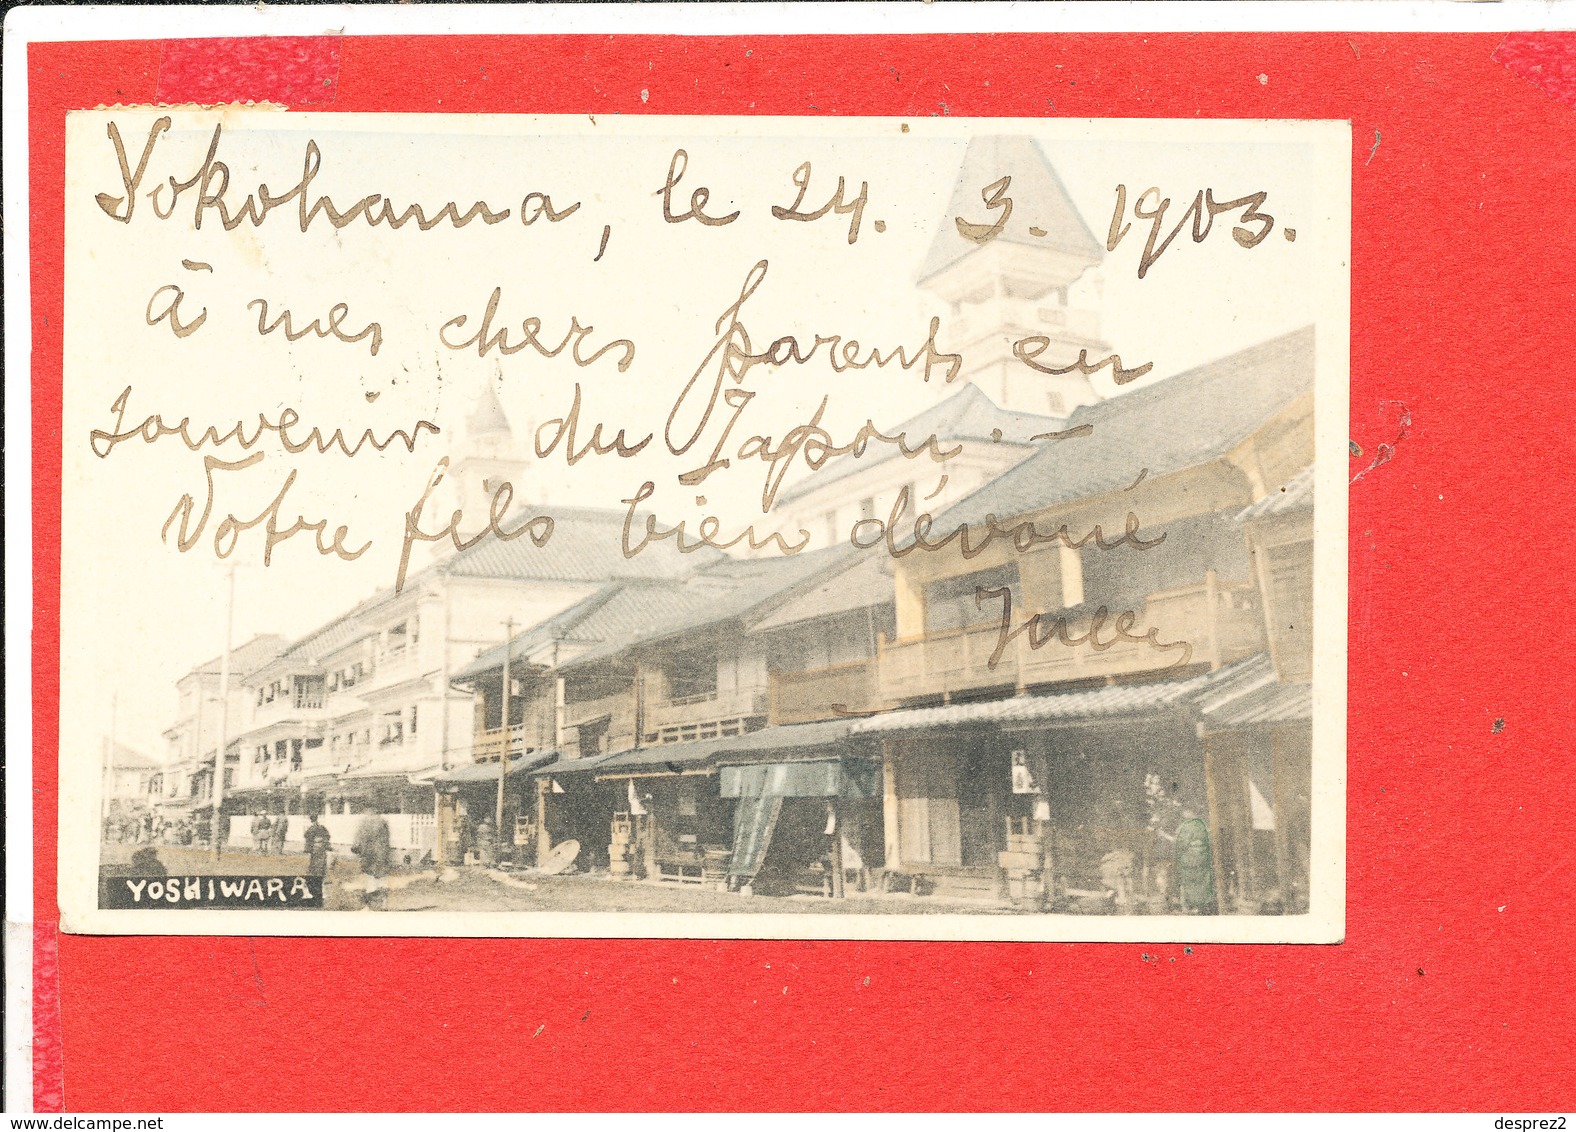 Yokohama, le 24. 3. 1903.
à mes chers parents en
souvenir du Japon. —
Votre fils bien dévoué
YOSHIWARA
www.delcampe.net
desprez2